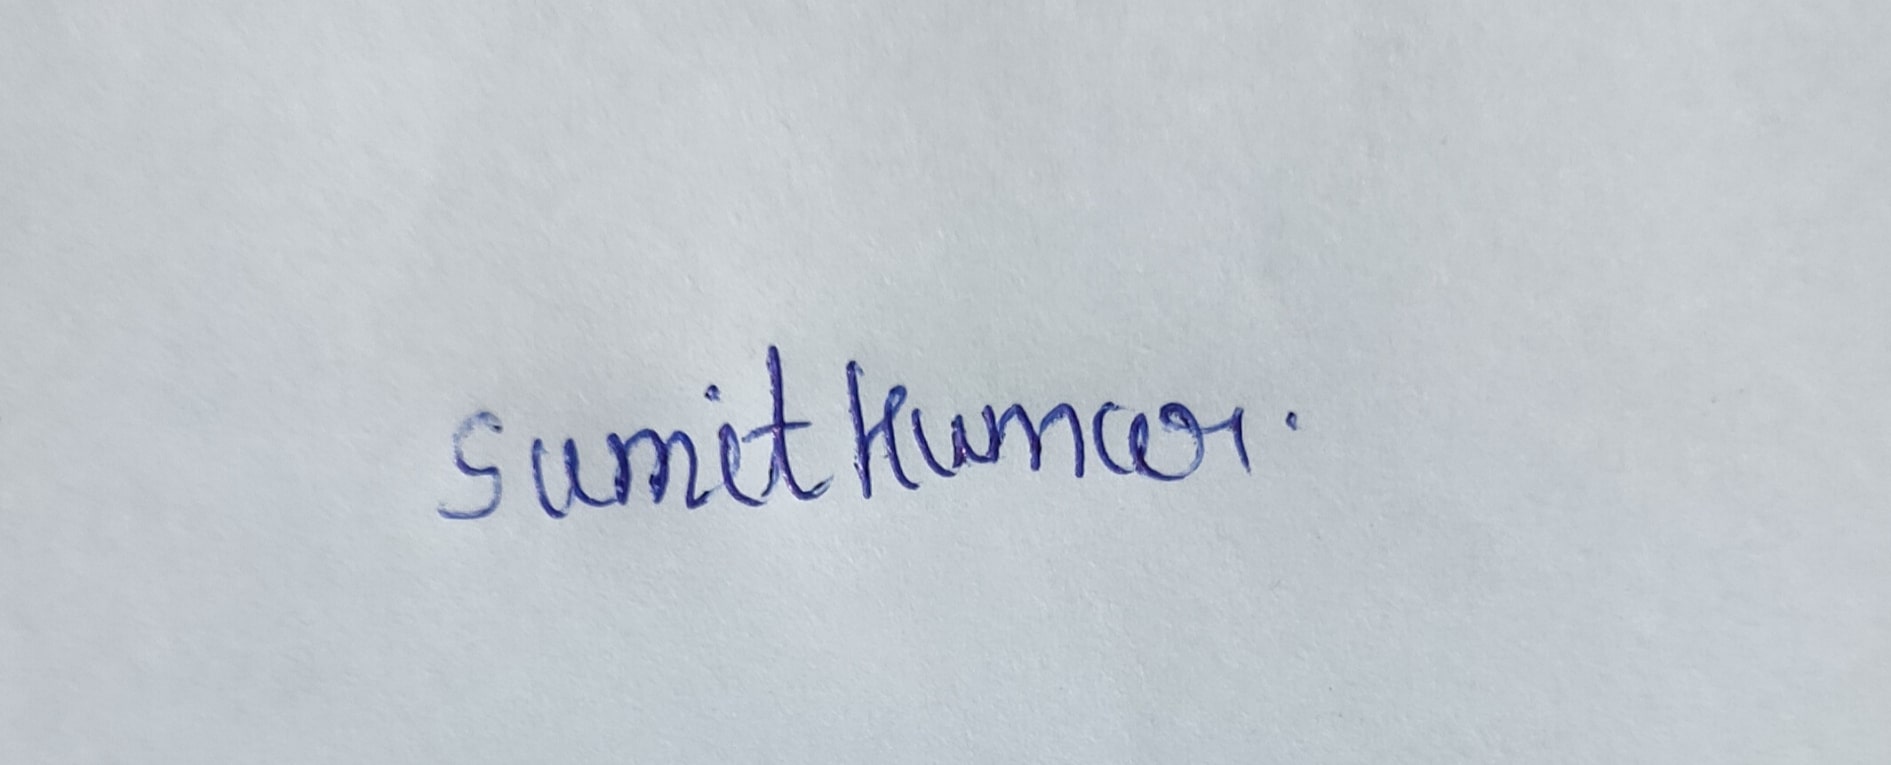 Sumit Kumar.